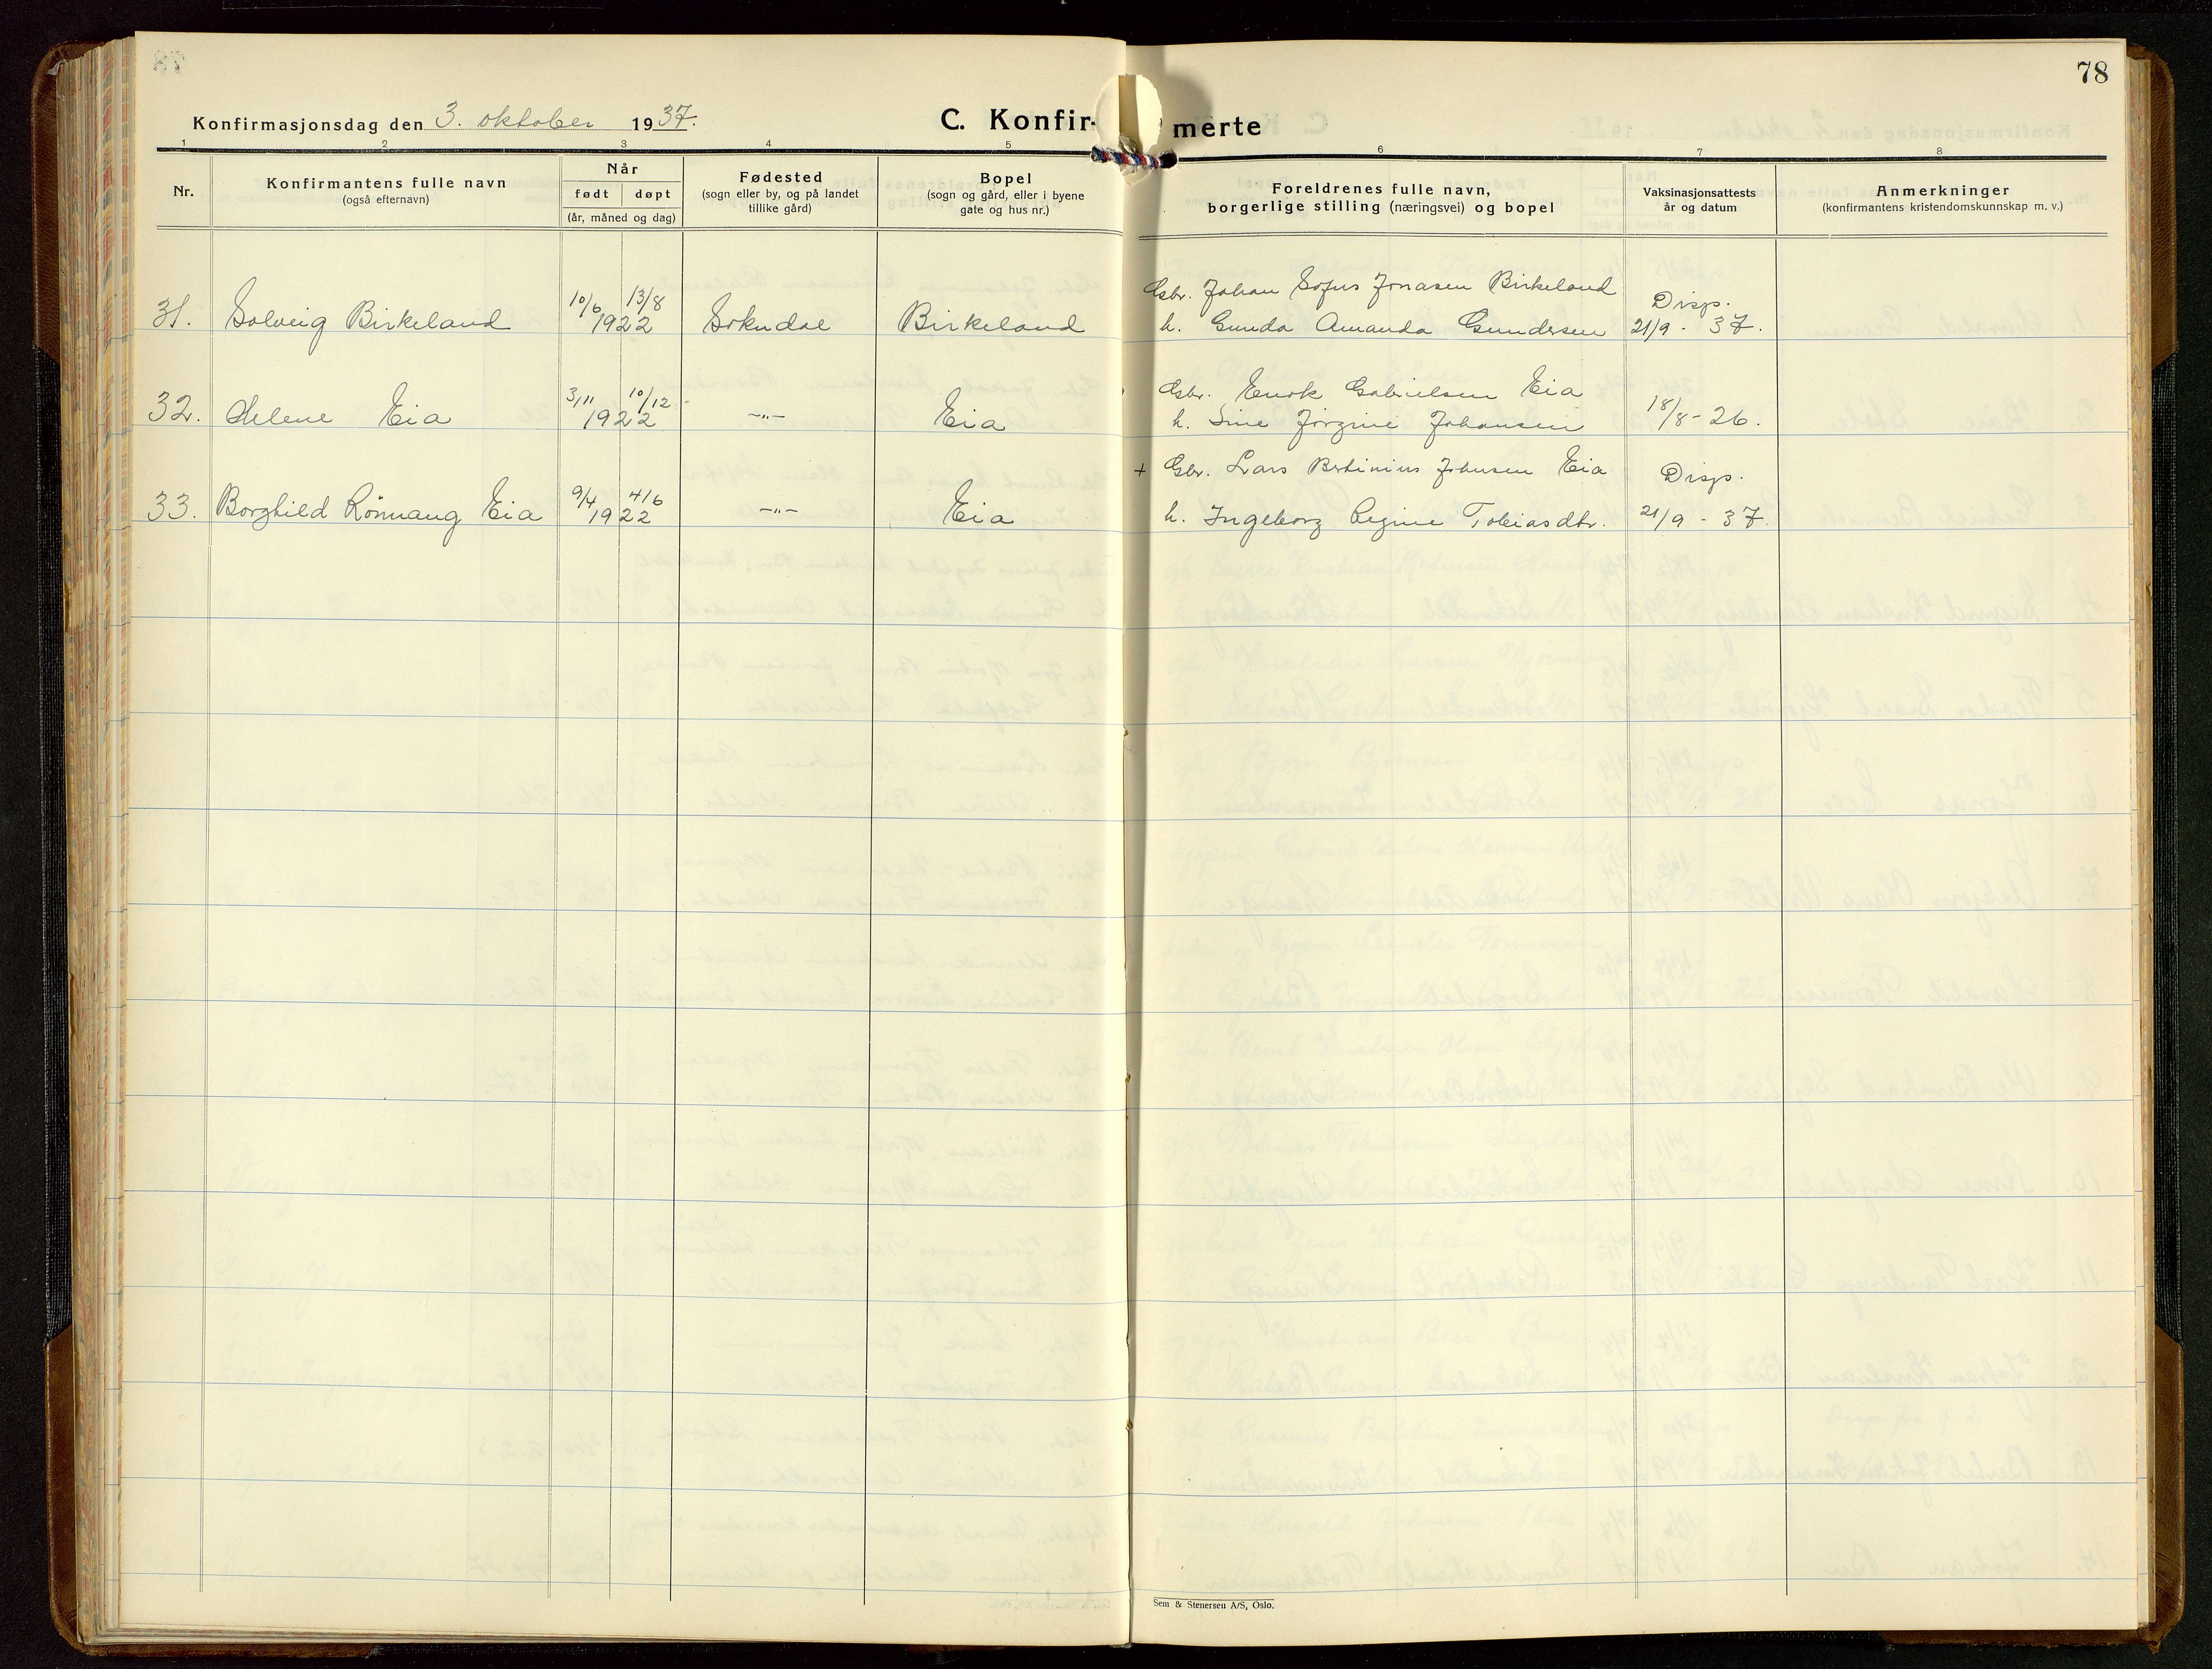 78
Konfirmasjonsdag den 3. oktober 1937.
C. Konfirmerte
1 2 3 4 5 6 7 8
Nr.
Konfirmantens fulle navn
(også efternavn)
Når
født døpt
(år, måned og dag)
Fødested
(sogn eller by, og på landet
tillike gård)
Bopel
(sogn og gård, eller i byene
gate og hus nr.)
Foreldrenes fulle navn,
borgerlige stilling (næringsvei) og bopel
Vaksinasjonsattests
år og datum
Anmerkninger
(konfirmantens kristendomskunnskap m. v.)
10/6 13/8 Gbr. Johan Sofus Jonasen Birkeland Disp.
31. Solveig Birkeland 1922 Sokndal Birkeland h. Gunda Amanda Gundersen 21/9 - 37.
3/11 10/12 Gbr. Enok Gabrielsen Eia
32. Helene Eia 1922 —„— Eia h. Sine Jørgine Johansen 18/8 - 26.
+ Gbr. Lars Bertinius Johnsen Eia Disp.
9/4 4/6
33. Borghild Rönnaug Eia 1922 —„— Eia h. Ingeborg Regine Tobiasdtr. 21/9 - 37.
Sem & Stenersen A/S, Oslo.